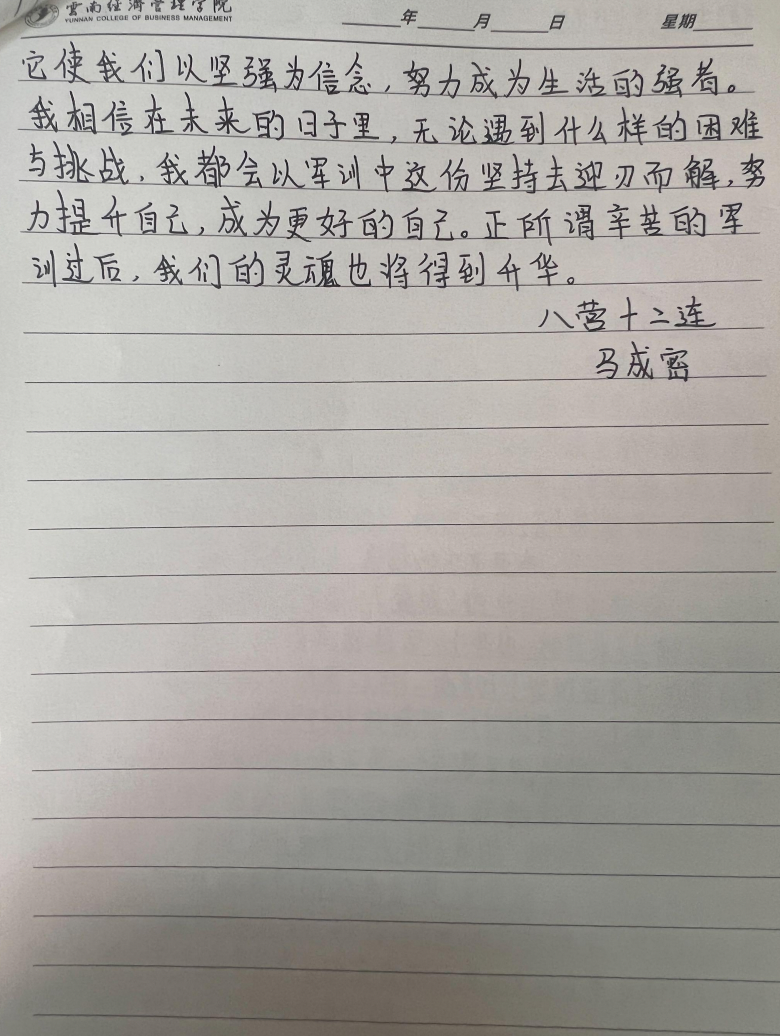 雲南經濟管理学院
YUNNAN COLLEGE OF BUSINESS MANAGEMENT
年 月 日 星期
它使我们以坚强为信念，努力成为生活的强者。
我相信在未来的日子里，无论遇到什么样的困难
与挑战，我都会以军训中这份坚持去迎刃而解，努
力提升自己，成为更好的自己。正所谓辛苦的军
训过后，我们的灵魂也将得到升华。
八营十二连
马成密